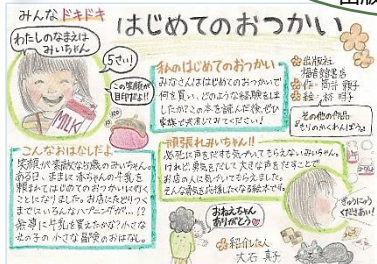 出版
みんなドキドキ
はじめてのおつかい
わたしのなまえは
みいちゃん
5さい!
この笑顔が
目印だよ!!
MILK!
私のはじめてのおつかい
みなさんははじめてのおつかいで
何を買い、どのような経験をしま
したか?この本を読んだ後、ぜひ
家族で共有してみてください!
出版社
福音館書店
作:筒井頼子
絵:林明子
その他の作品
もりのかくれんぼう
こんなおはなしだよ
笑顔が素敵な5歳のみいちゃん。
ある日、ままに赤ちゃんの牛乳を
頼まれてはじめてのおつかいに行く
ことになりました。お店にたどりつく
までにいろんなハプニングが…!?
無事に牛乳を買えたかな?小さな
女の子の小さな冒険のおはなし。
頑張れみいちゃん!!
必死に声をだすも気づいてもらえないみいちゃん。
けれど、勇気をだして大きな声をだすことで
お店の人に気づいてもらえました。
そんな姿を応援したくなる絵本です。
おねえちゃん
ありがとう
ぎゅうにゅう
くださあい!
紹介した人
大石真子